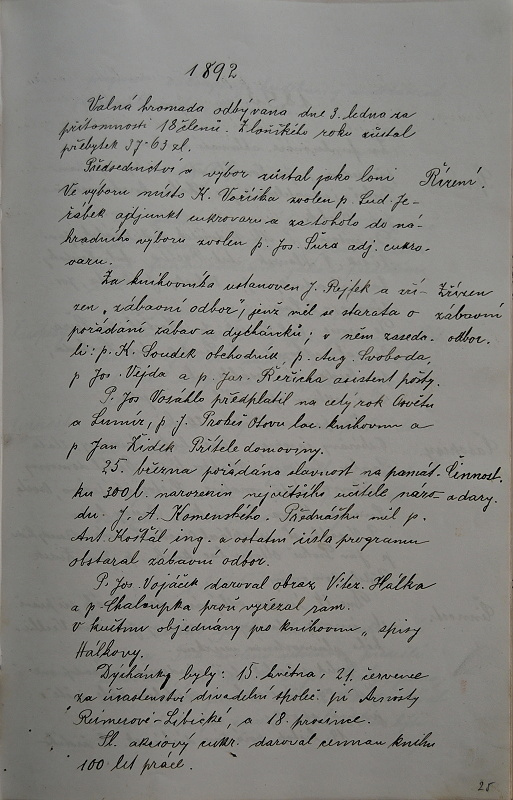 1892
Valná hromada odbývána dne 3. ledna za
přítomnosti 18 členů. Z loňského roku zůstal
přebytek 37·63 zl.
Předsednictví a výbor zůstal jako loni Řízení.
Ve výboru místo K. Voříška zvolen p. Lud. Je-
řábek adjunkt cukrovaru a za tohoto do ná-
hradního výboru zvolen p. Jos. Šura adj. cukro-
varu.
Za knihovníka ustanoven J. Rejfek a zří- Zřízen
zen „zábavní odbor", jenž měl se starati o zábavní
pořádání zábav a dýchánků; v něm zaseda- odbor.
li: p. K. Soudek obchodník, p. Aug. Svoboda,
p Jos. Vejda a p. Jar. Řeřicha asistent pošty.
P. Jos Vosáhlo předplatil na celý rok Osvětu
a Lumír, p. J. Probeš Ottovu lac. knihovnu a
p Jan Zídek Přítele domoviny.
25. března pořádána slavnost na památ- Činnost
ku 300 l. narozenin největšího učitele náro- a dary.
du. J. A. Komenského. Přednášku měl p.
Ant. Košťál ing. a ostatní čísla programu
obstaral zábavní odbor.
P. Jos. Vojáček daroval obraz Vítěz. Hálka
a p. Chaloupka proň vyřezal rám.
V květnu objednány pro knihovnu „ spisy
Hálkovy.
Dýchánky byly: 15. května, 21. července
za účastenství divadelní společ. pí Arnošty
Reimerové-Libické, a 18. prosince.
Sl. akciový cukr. daroval cennou knihu
100 let práce.
25